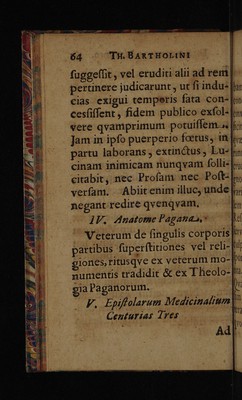 64 TH. BARTHOLINI
suggeſſit, vel eruditi alii ad rem
pertinere judicarunt, ut ſi indu-
cias exigui temporis fata con-
ceſſiſſent, fidem publico exſol-
vere qvamprimum potuiſſem.
Jam in ipſo puerperio fœtus, in
partu laborans, extinctus, Lu-
cinam inimicam nunqvam ſolli-
citabit, nec Proſam nec Poſt-
verſam. Abiit enim illuc, unde
negant redire qvenqvam.
IV. Anatome Pagana.
Veterum de ſingulis corporis
partibus ſuperſtitiones vel reli-
giones, ritusqve ex veterum mo-
numentis tradidit & ex Theolo-
gia Paganorum.
V. Epiſtolarum Medicinalium
Centurias Tres
Ad